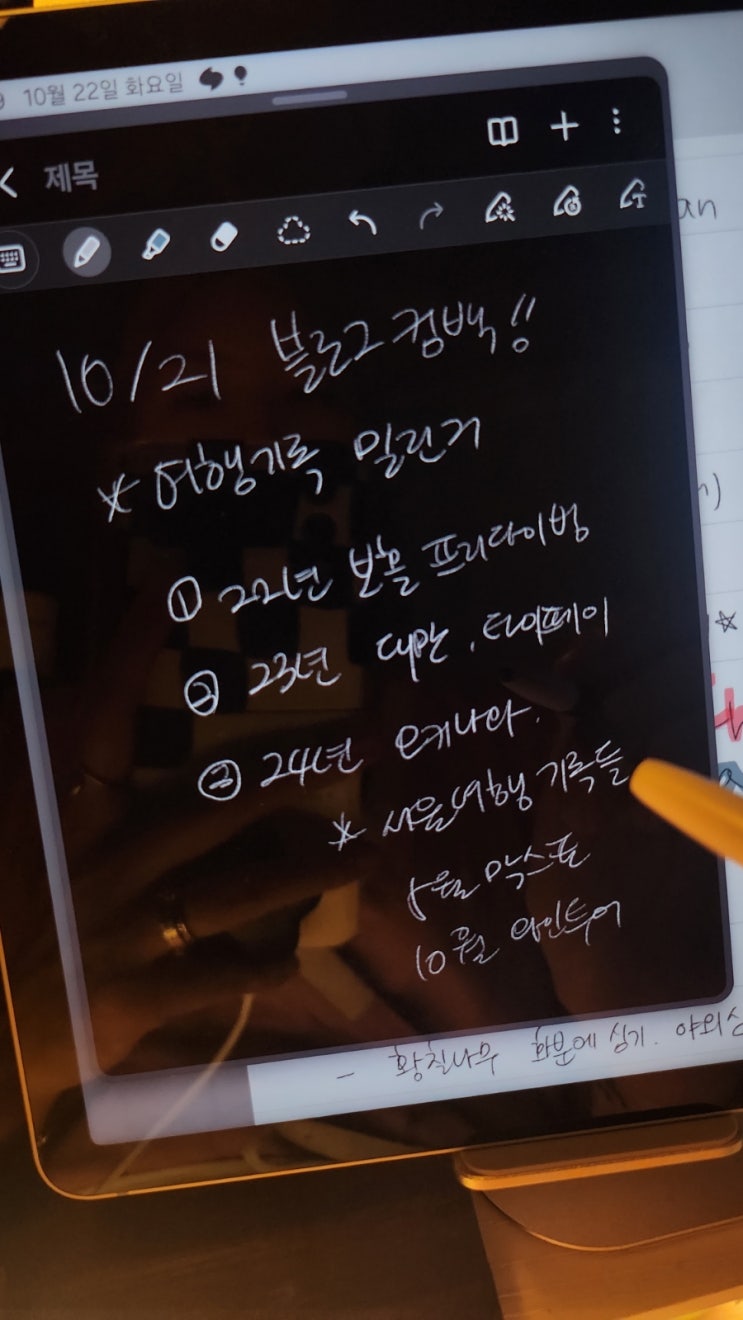 10월 22일 화요일
제목
an
10/21 블로그 컴백!!
* 여행기록 밀린거
① 22년 보홀 프리다이빙
② 23년 대만, 타이페이
③ 24년 오키나와.
* 서울여행 기록들
5월 믹스토
10월 와인투어
- 황칠나무 화분에 심기. 야외